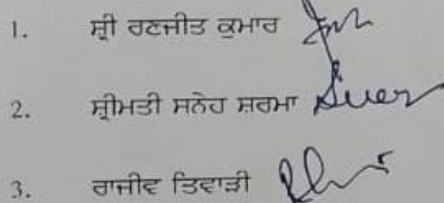 1. ਸ਼੍ਰੀ ਰਣਜੀਤ ਕੁਮਾਰ
2. ਸ਼੍ਰੀਮਤੀ ਸਨੇਹ ਸ਼ਰਮਾ
3. ਰਾਜੀਵ ਤਿਵਾੜੀ